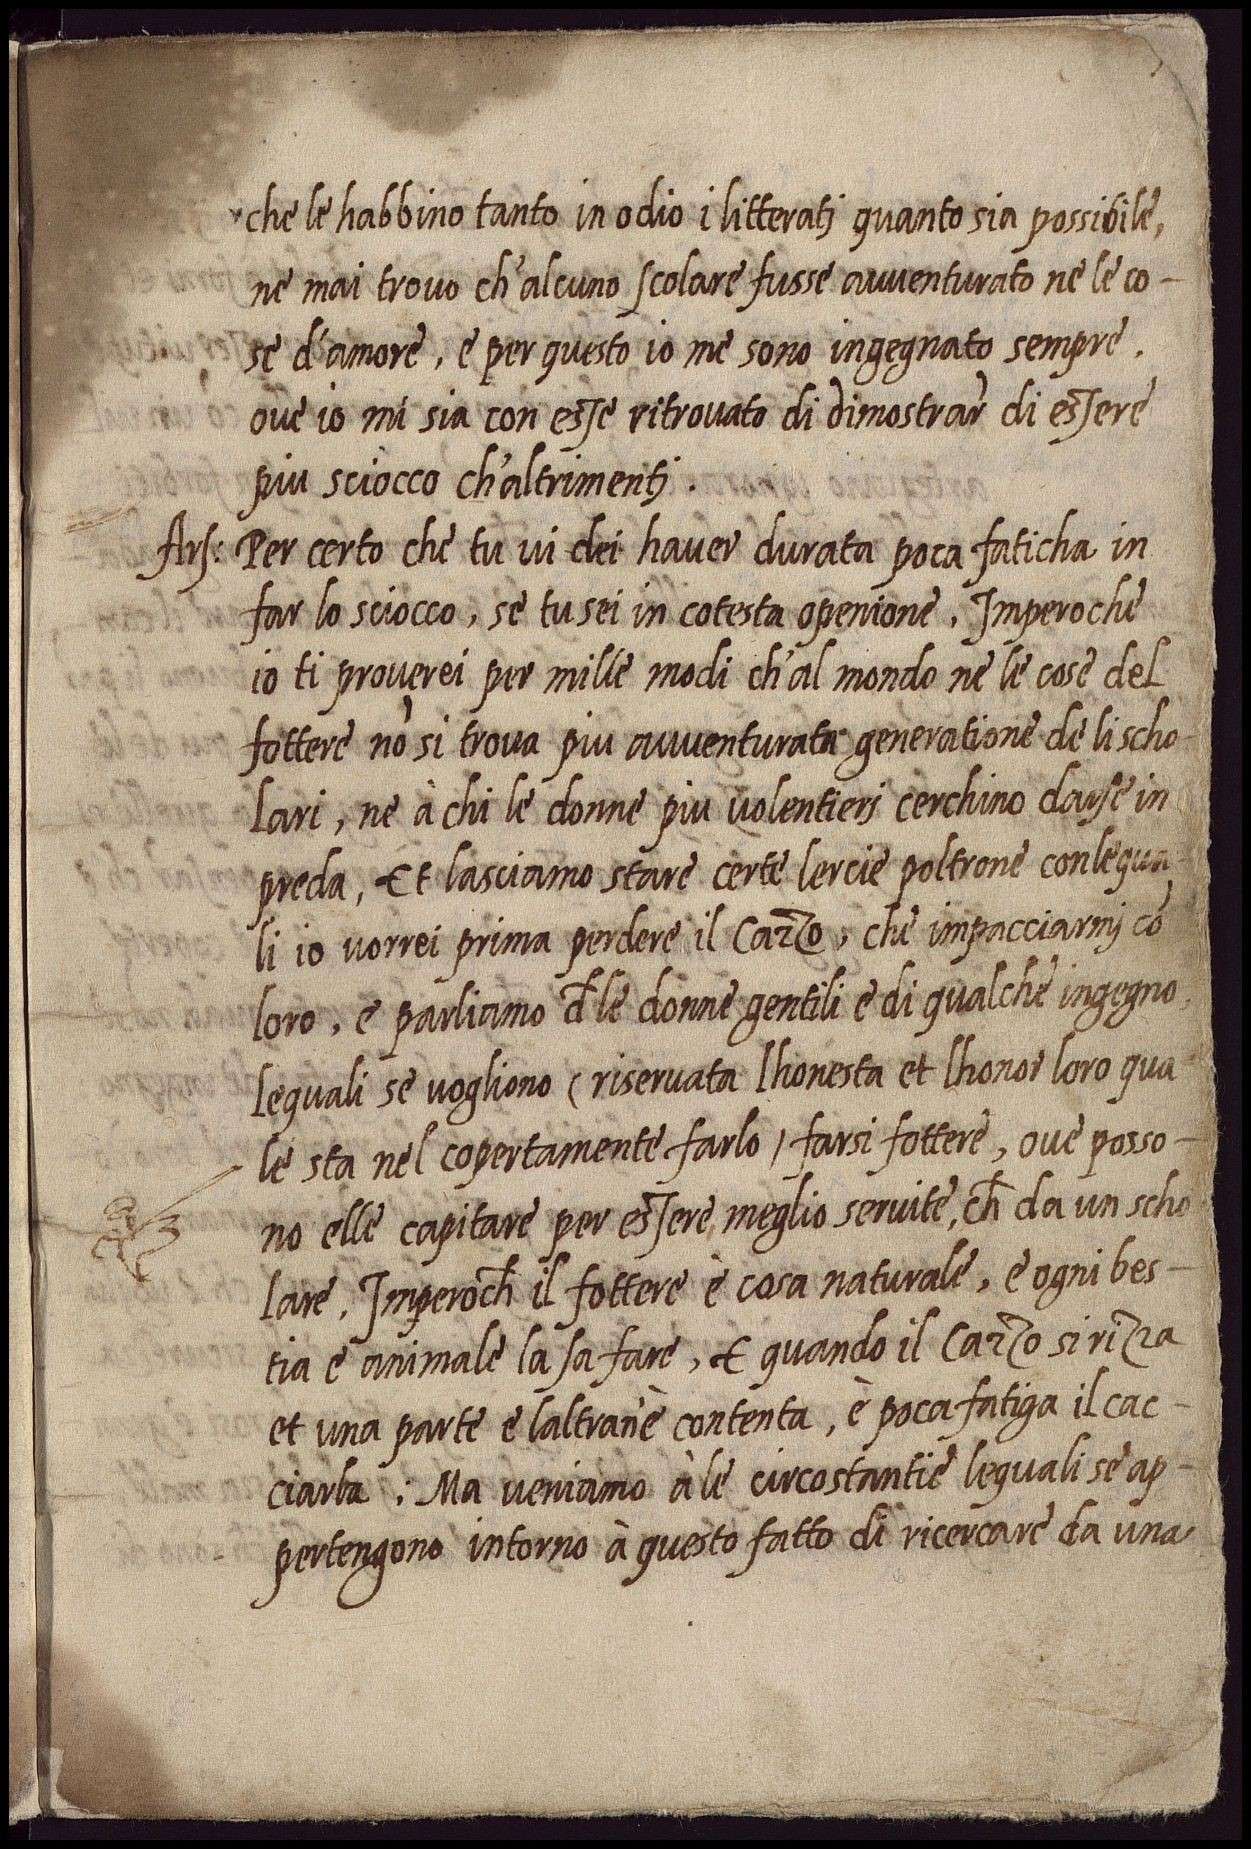 che le habbino tanto in odio i litteratj quanto sia possibile,
ne mai trovo ch'alcuno scolare fusse avventurato ne le co-
se d'amore, e per questo io me sono ingegnato sempre.
ove io mi sia con esse ritrovato di dimostrar di essere
piu sciocco ch'altrimentj.
Ars: Per certo che tu vi dei haver durata poca faticha in
far lo sciocco, se tu sei in cotesta openione, Imperoche
io ti proverei per mille modi ch'al mondo ne le cose del
fottere nò si trova piu avventurata generatione de li scho-
lari, ne à chi le donne piu volentierj cerchino darse in
preda, Et lasciamo stare certe lercie poltrone con le qua-
li io vorrei prima perdere il Cazzo, che impacciarmj cō
loro, e parliamo đ le donne gentili e di qualche ingegno
lequali se vogliono (riservata lhonesta et lhonor loro qua-
le sta nel copertamente farlo) farsi fottere, ove posso-
no elle capitare per essere meglio servite, ch̄ da un scho
lare. Imperoch̄ il fottere è cosa naturale, e ogni bes-
tia e animale la sa fare, Et quando il Cazzo si rizza
et una parte e laltra n'è contenta, è poca fatiga il cac-
ciarla: Ma veniamo à le circostantie lequali se ap-
pertengono intorno à questo fatto di ricercare da una